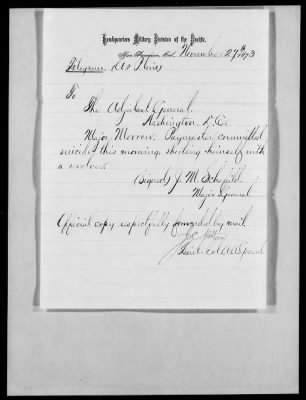 Headquarters Military Division of the Pacific,
San Francisco, Cal. November 27th 1873
Telegram
To
The Adjutant General.
Washington, D.C.
Major Morrow, Paymaster, committed
suicide this morning, shooting himself with
a revolver.
(Signed) J. M. Schofield
Major General
Official copy respectfully forwarded by mail
Lieut. Col. A.A. General